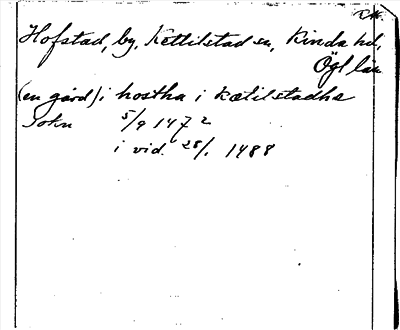 Hofstad, by, Kettilstad sn, Kinda hd,
Ögl län
(en gård) i hostha i kætilstadha
Sokn 5/9 1472
i vid. 28/1 1488